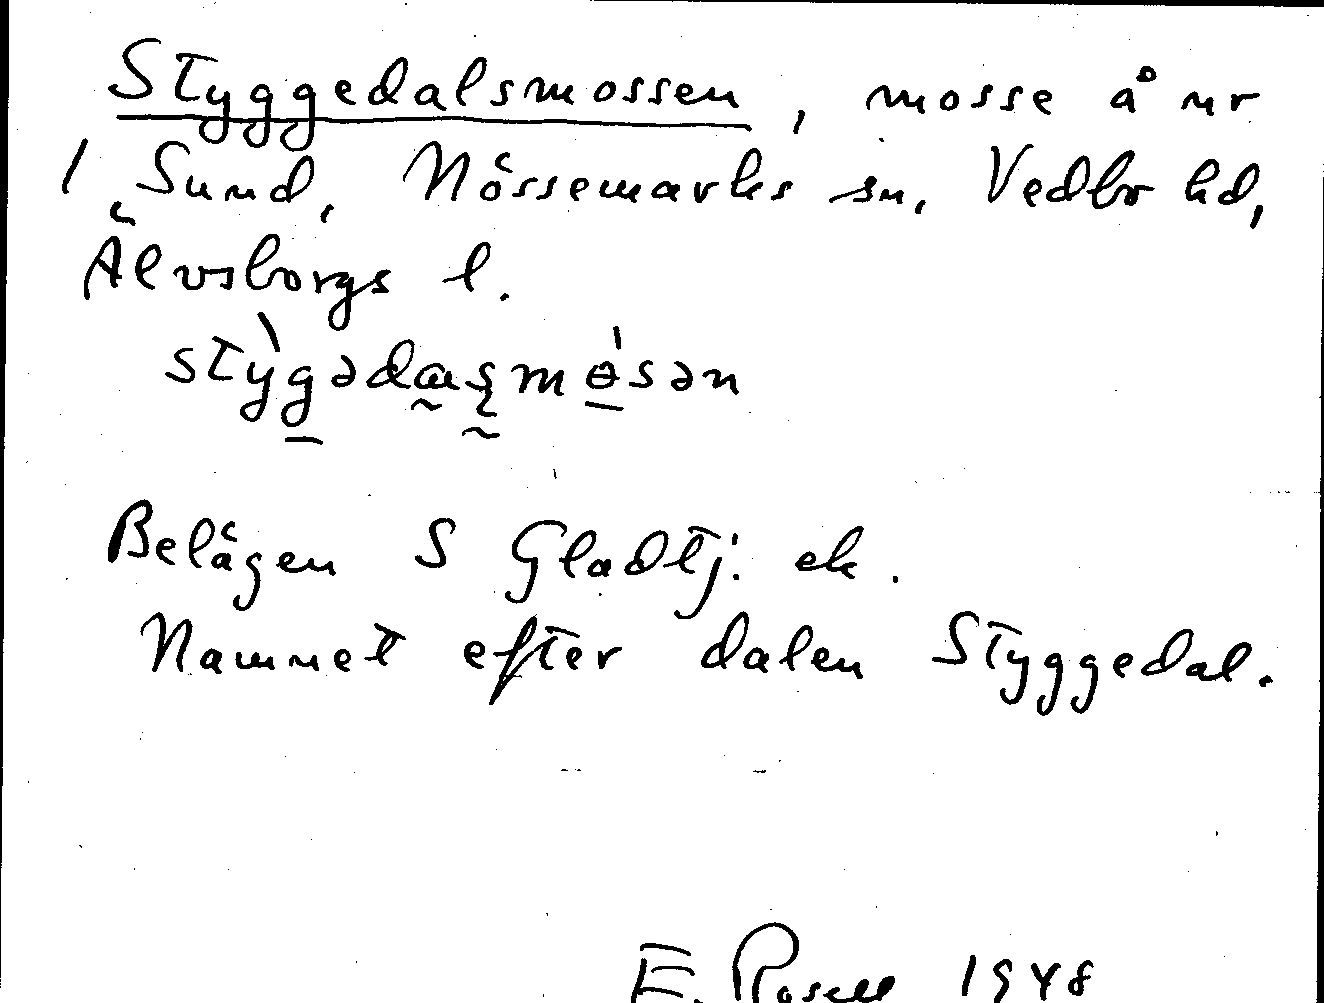 Styggedalsmossen, mosse å nr
1 Sund, Nössemarks sn, Vedbo hd,
Älvsborgs l.
stỳgədɑʂmɵ́sən
Belägen S Gladtj: ek.
Namnet efter dalen Styggedal.
E. Rosell 1948